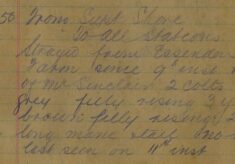 50 From Supt Shore
To All Stations
Strayed from Essendon
Farm since 9th inst
of Mr Sinclair 2 colts
grey filly rising 3 y
brown filly rising 2
long mane & tail no
last seen on 11th inst